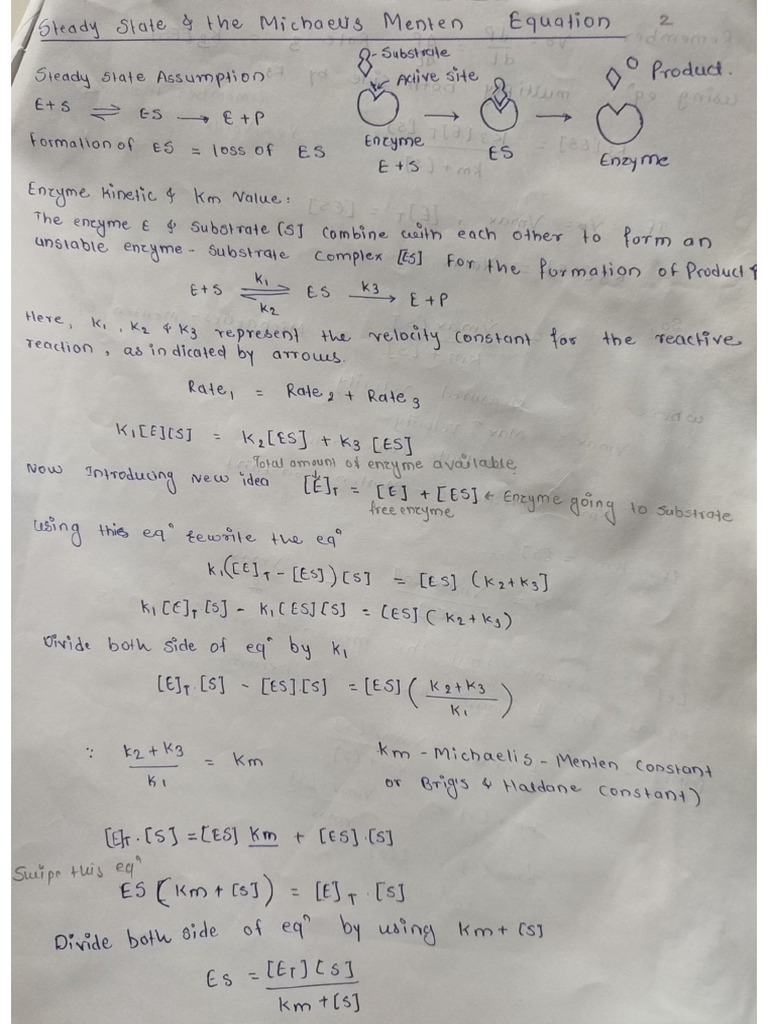 Steady State & the Michaelis Menten Equation 2
Steady State Assumption
E+S ⇌ ES → E+P
Formation of ES = loss of ES
Substrate
Active site
Enzyme
E + S
ES
Product.
Enzyme
Enzyme Kinetic & Km Value:
The enzyme E & Substrate [S] combine with each other to form an
unstable enzyme - substrate complex [ES] For the formation of Product
E+S ⇌ ES → E+P
K1 K2 K3
Here, K1, K2 & K3 represent the velocity constant for the reactive
reaction, as indicated by arrows.
Rate1 = Rate2 + Rate3
K1[E][S] = K2[ES] + K3 [ES]
Total amount of enzyme available
Now Introducing New idea [E]T = [E] + [ES] ← Enzyme going to substrate
free enzyme
Using this eqn rewrite the eqn
K1([E]T - [ES])[S] = [ES] (K2+K3]
K1[E]T[S] - K1[ES][S] = [ES](K2+K3)
Divide both side of eqn by K1
[E]T.[S] - [ES].[S] = [ES] (K2+K3/K1)
∵ K2+K3/K1 = Km
Km - Michaelis - Menten constant
or Brig's & Haldane constant)
[E]T.[S] = [ES] Km + [ES].[S]
Swipe this eqn
ES (Km + [S]) = [E]T.[S]
Divide both side of eqn by using Km+[S]
Es = [ET][S]/Km+[S]